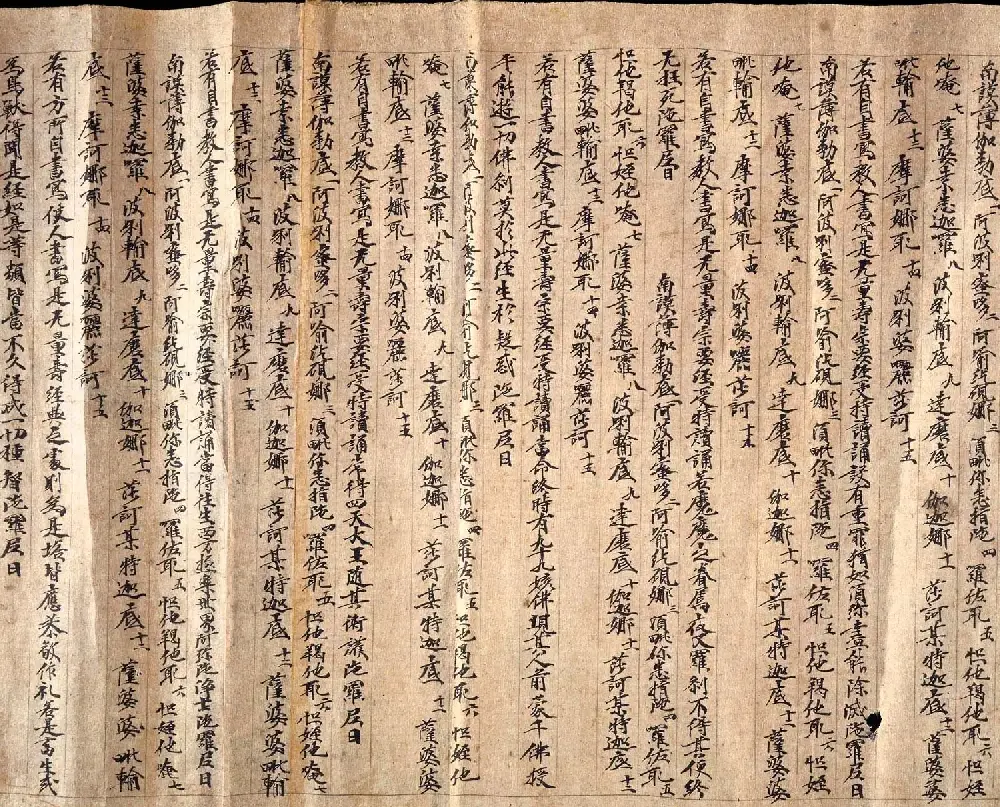 南謨薄伽勃底一阿波唎蜜哆二阿喻紇硯娜三須毗你悉指陁四羅佐耶五怛他羯他耶六怛姪
他唵七薩婆桒悉迦羅八波唎輸底九達磨底十伽迦娜十一莎訶某特迦底十二薩婆婆
毗輸底十三摩訶娜耶十四波唎婆囇莎訶十五
若有自書寫教人書寫是无量壽宗要經受持讀誦設有重罪猶如須弥盡能除滅陁羅尼曰
南謨薄伽勃底一阿波唎蜜哆二阿喻紇硯娜三須毗你悉指陁四羅佐耶五怛他羯他耶六怛姪
他唵七薩婆桒悉迦羅八波唎輸底九達磨底十伽迦娜十一莎訶某特迦底十二薩婆婆
毗輸底十三摩訶娜耶十四波唎婆囇莎訶十五
若有自書寫教人書寫是无量壽宗要經受持讀誦若魔魔之眷屬夜叉羅刹不得其便終
无枉死陁羅尼曰 南謨薄伽勃底一阿波唎蜜哆二阿喻紇硯娜三須毗你悉指陁四羅佐耶五
怛他羯他耶六怛姪他唵七薩婆桒悉迦羅八波唎輸底九達磨底十伽迦娜十一莎訶某特迦底十二
薩婆婆毗輸底十三摩訶娜耶十四波唎婆囇莎訶十五
若有自書寫教人書寫是无量壽宗要經受持讀誦當命終時有九十九核佛現其人前蒙千佛授
手能遊一切佛刹莫於此經生於疑惑陁羅尼曰
南謨薄伽勃底一阿波唎蜜哆二阿喻紇硯娜三須毗你悉指陁四羅佐耶五怛他羯他耶六怛姪他
唵七薩婆桒悉迦羅八波唎輸底九達磨底十伽迦娜十一莎訶某特迦底十二薩婆婆
毗輸底十三摩訶娜耶十四波唎婆囇莎訶十五
若有自書寫教人書寫是无量壽宗要經受持讀誦常得四天大王隨其衛護陁羅尼曰
南謨薄伽勃底一阿波唎蜜哆二阿喻紇硯娜三須毗你悉指陁四羅佐耶五怛他羯他耶六怛姪他唵七
薩婆桒悉迦羅八波唎輸底九達磨底十伽迦娜十一莎訶某特迦底十二薩婆婆毗輸
底十三摩訶娜耶十四波唎婆囇莎訶十五
若有自書寫教人書寫是无量壽宗要經受持讀誦當得往生西方極樂世界阿弥陁淨土陁羅尼曰
南謨薄伽勃底一阿波唎蜜哆二阿喻紇硯娜三須毗你悉指陁四羅佐耶五怛他羯他耶六怛姪他唵七
薩婆桒悉迦羅八波唎輸底九達磨底十伽迦娜十一莎訶某特迦底十二薩婆婆毗輸
底十三摩訶娜耶十四波唎婆囇莎訶十五
若有方所自書寫使人書寫是无量壽經典之處則為是塔皆應恭敬作礼若是畜生或
為鳥獸得聞是經如是等類皆當不久得成一切種智陁羅尼曰